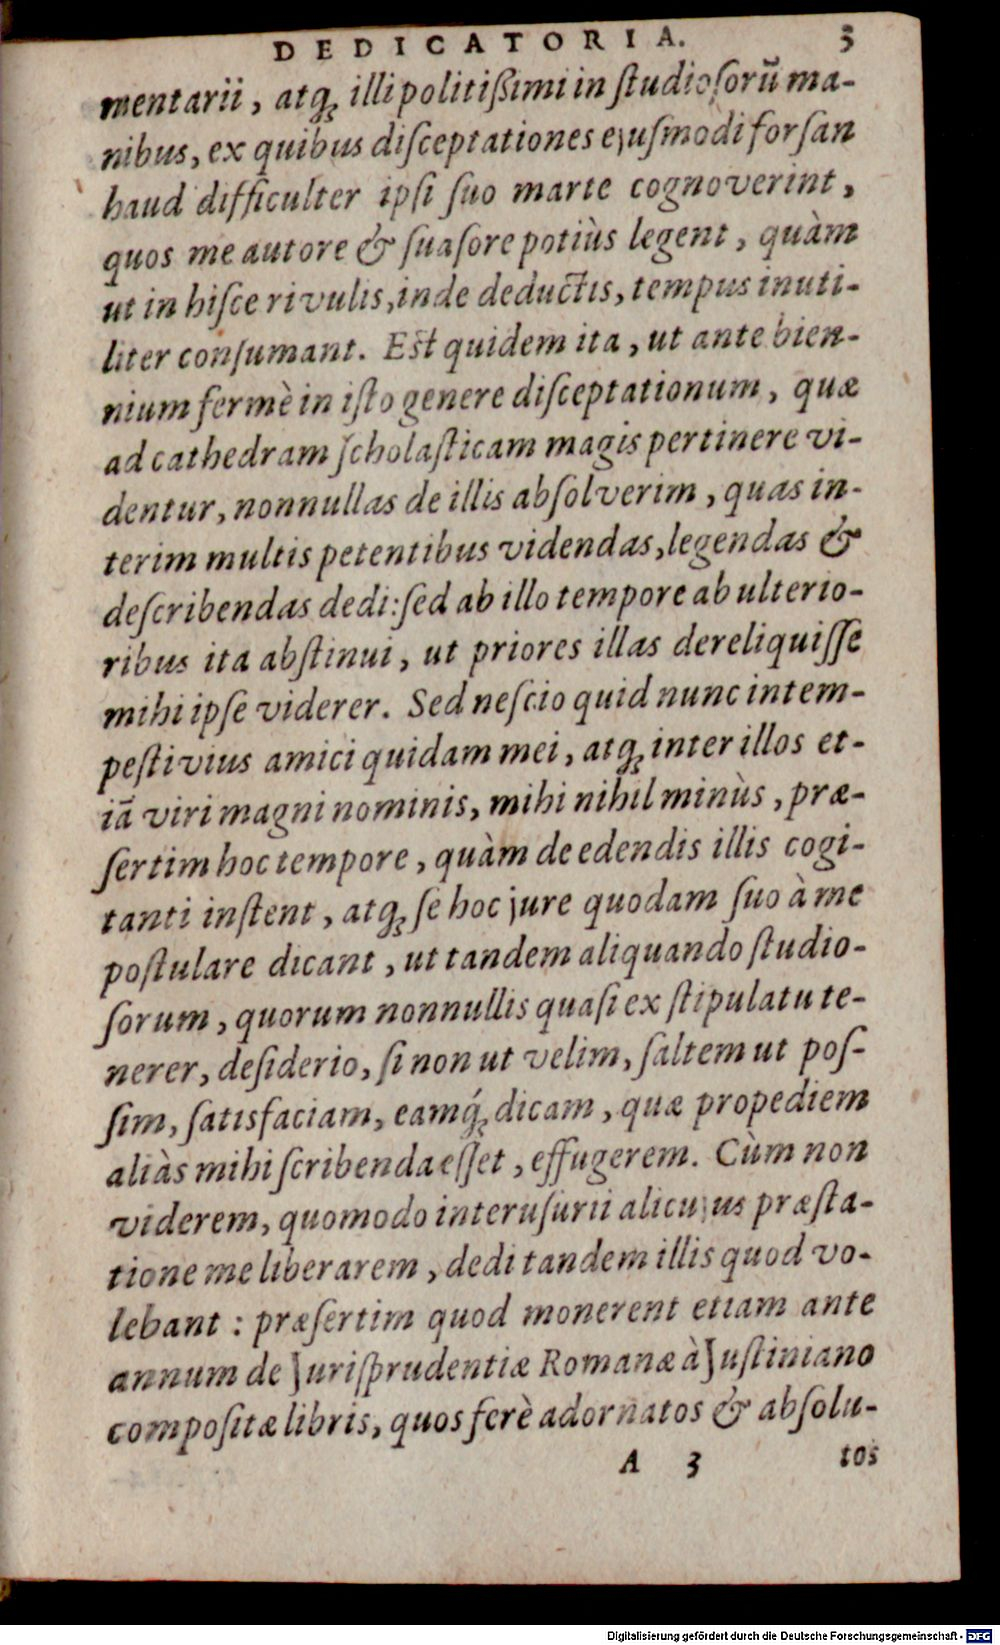 DEDICATORIA. 3
mentarii, atq́ꝫ illi politißimi in ſtudioſorū ma-
nibus, ex quibus diſceptationes ejuſmodi forſan
haud difficulter ipſi ſuo marte cognoverint,
quos me autore & ſuaſore potiùs legent, quàm
ut in hiſce rivulis, inde deductis, tempus inuti-
liter conſumant. Eſt quidem ita, ut ante bien-
nium fermè in iſto genere diſceptationum, quæ
ad cathedram ſcholaſticam magis pertinere vi-
dentur, nonnullas de illis abſolverim, quas in-
terim multis petentibus videndas, legendas &
deſcribendas dedi: ſed ab illo tempore ab ulterio-
ribus ita abſtinui, ut priores illas dereliquiſſe
mihi ipſe viderer. Sed neſcio quid nunc intem-
peſtivius amici quidam mei, atqꝫ inter illos et-
iā viri magni nominis, mihi nihil minùs, præ-
ſertim hoc tempore, quàm de edendis illis cogi-
tanti inſtent, atqꝫ ſe hoc jure quodam ſuo à me
poſtulare dicant, ut tandem aliquando ſtudio-
ſorum, quorum nonnullis quaſi ex ſtipulatu te-
nerer, deſiderio, ſi non ut velim, ſaltem ut poſ-
ſim, ſatisfaciam, eamq́ꝫ dicam, quæ propediem
aliàs mihi ſcribenda eſſet, effugerem. Cùm non
viderem, quomodo interuſurii alicujus præſta-
tione me liberarem, dedi tandem illis quod vo-
lebant: præſertim quod monerent etiam ante
annum de Juriſprudentiæ Romanæ à Juſtiniano
compoſitæ libris, quos ferè adornatos & abſolu-
A 3 tos
Digitalisierung gefördert durch die Deutsche Forschungsgemeinschaft - DFG